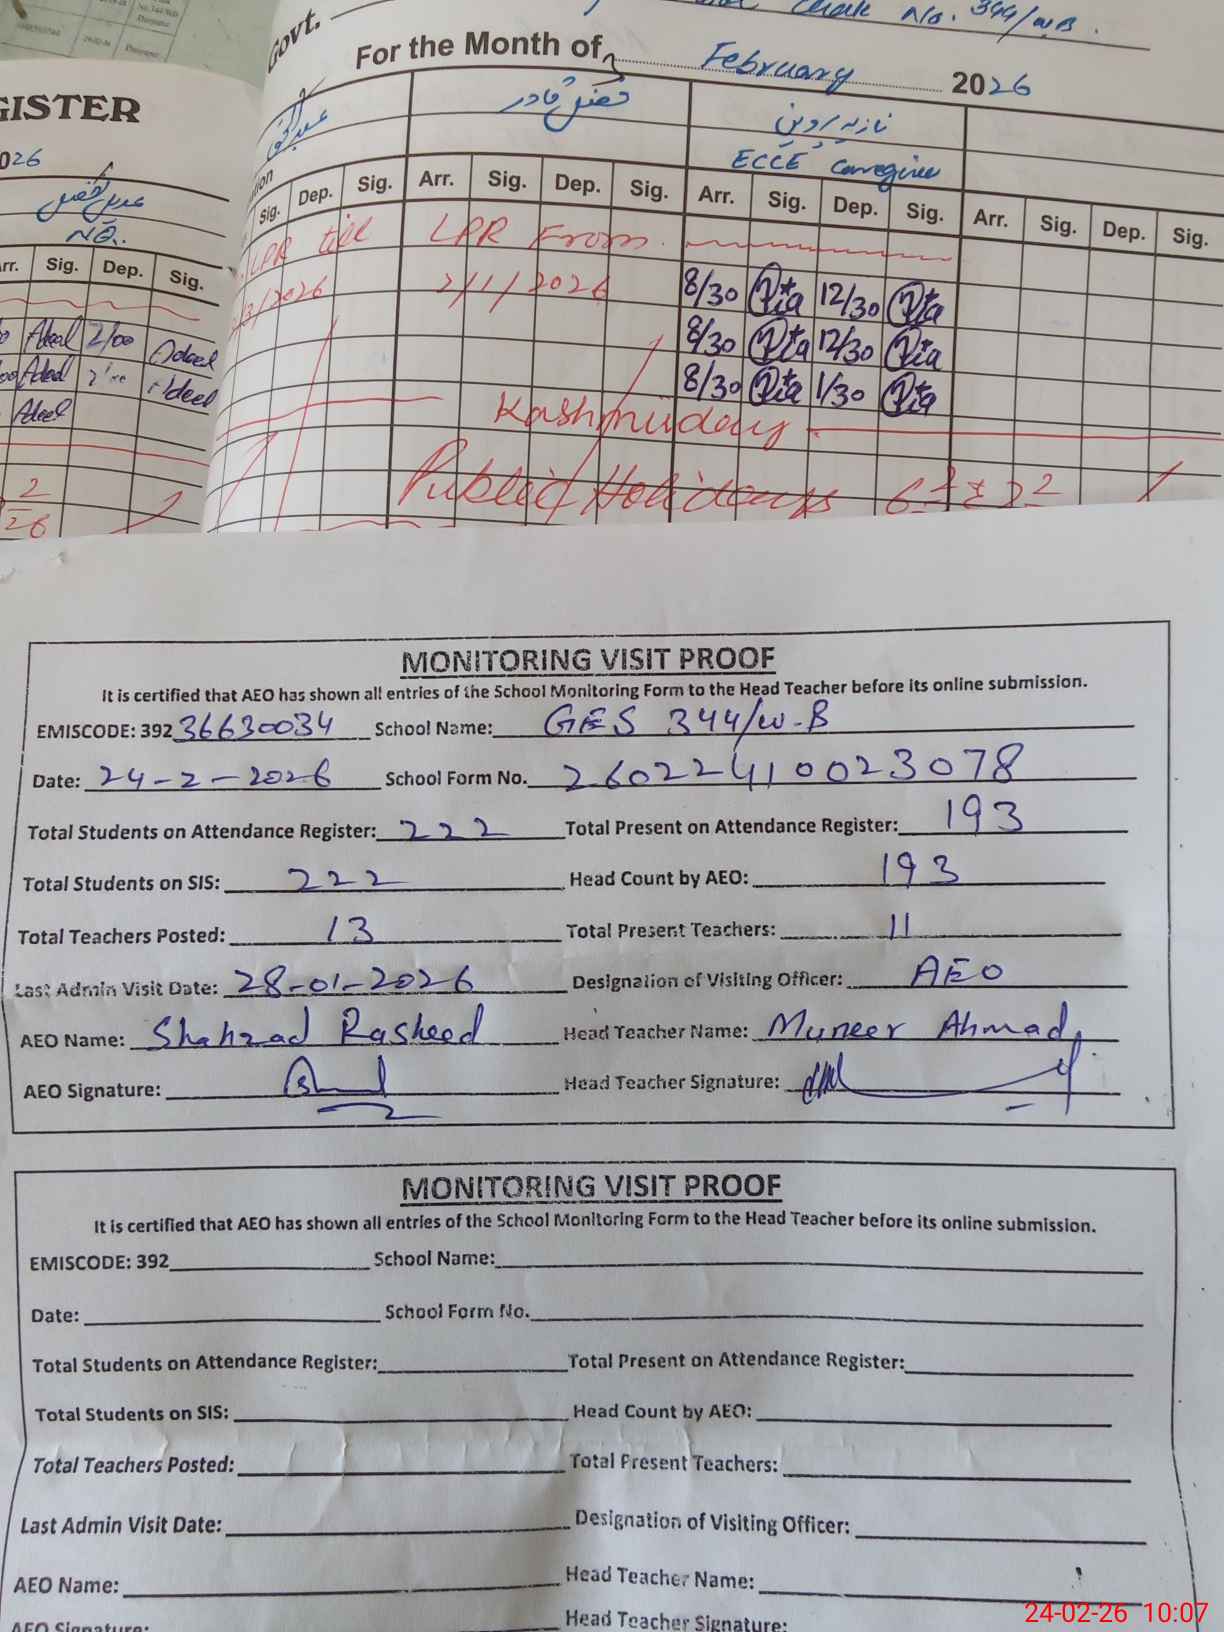 Chak No. 344/W.B.
Govt.
For the Month of February 2026
GISTER
026
فضل قادر
نازیہ پروین
ECCE Caregiver
Sig. Dep. Sig. Arr. Sig. Dep. Sig. Arr. Sig. Dep. Sig. Arr. Sig. Dep. Sig.
rr. Sig. Dep. Sig.
LPR till LPR From
3/2026 2/1/2026
8/30 12/30
8/30 12/30
8/30 1/30
Adeel 2/00 Adeel
Adeel Adeel
Adeel
Kashmir day
Public Holidays
MONITORING VISIT PROOF
It is certified that AEO has shown all entries of the School Monitoring Form to the Head Teacher before its online submission.
EMISCODE: 392 36630034 School Name: GES 344/W-B
Date: 24-2-2026 School Form No. 260224100023078
Total Students on Attendance Register: 222 Total Present on Attendance Register: 193
Total Students on SIS: 222 Head Count by AEO: 193
Total Teachers Posted: 13 Total Present Teachers: 11
Last Admin Visit Date: 28-01-2026 Designation of Visiting Officer: AEO
AEO Name: Shahzad Rasheed Head Teacher Name: Muneer Ahmad
AEO Signature: Head Teacher Signature:
MONITORING VISIT PROOF
It is certified that AEO has shown all entries of the School Monitoring Form to the Head Teacher before its online submission.
EMISCODE: 392 School Name:
Date: School Form No.
Total Students on Attendance Register: Total Present on Attendance Register:
Total Students on SIS: Head Count by AEO:
Total Teachers Posted: Total Present Teachers:
Last Admin Visit Date: Designation of Visiting Officer:
AEO Name: Head Teacher Name:
AEO Signature: Head Teacher Signature:
24-02-26 10:07